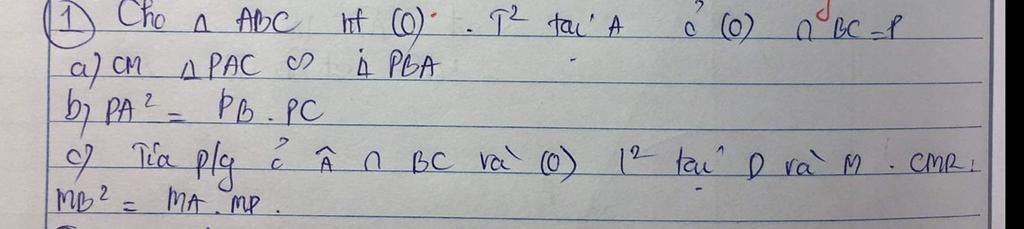 ① Cho Δ ABC nt (O). T² tại A của (O) ∩ BC = P
a) CM Δ PAC ∽ Δ PBA
b) PA² = PB. PC
c) Tia p/g của Â ∩ BC và (O) l² tại D và M. CMR:
MB² = MA. MP.